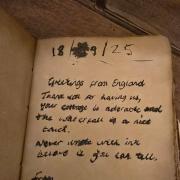 18/9/25
Greetings from England
Thank you for having us,
your cottage is adorable and
the waterfall is a nice
touch.
Never wrote with ink
before as you can tell.
From